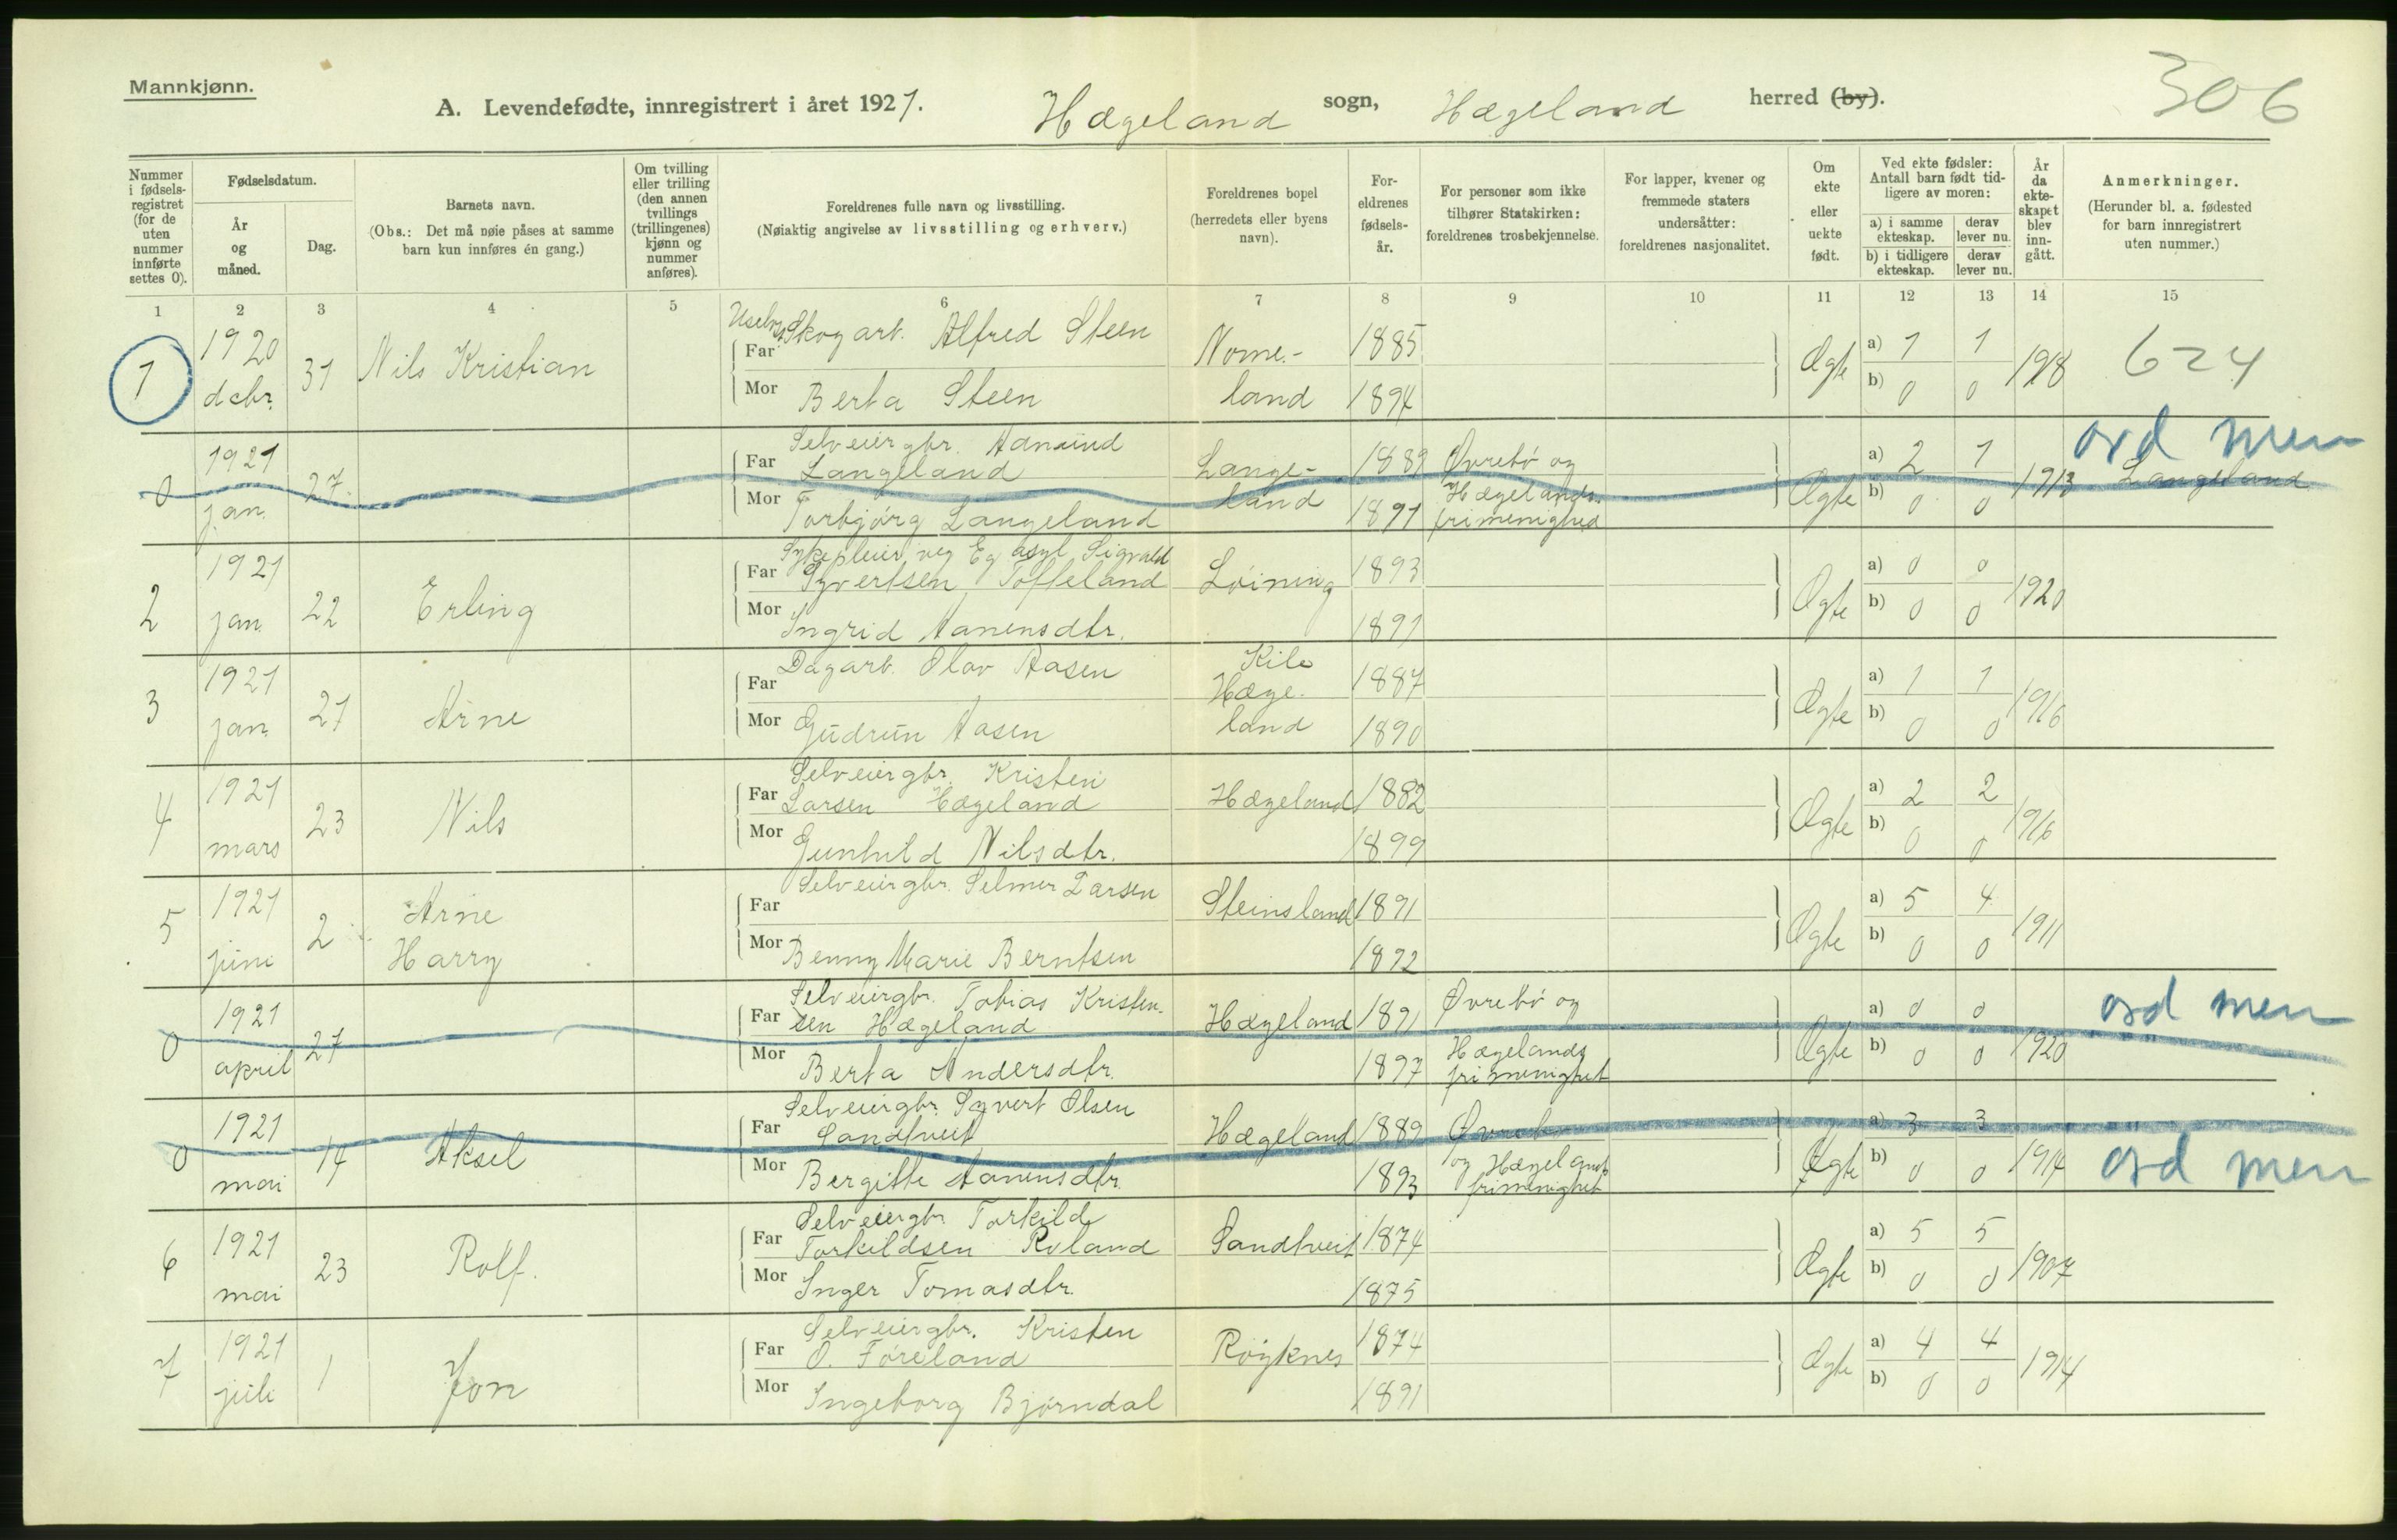 Mannkjønn.
A. Levendefødte, innregistrert i året 1921. Hægeland sogn, Hægeland herred (by).
306
Nummer i fødsels-registret (for de uten nummer innførte settes 0).
Fødselsdatum.
År og måned.
Dag.
Barnets navn.
(Obs.: Det må nøie påses at samme barn kun innføres én gang.)
Om tvilling eller trilling (den annen tvillings (trillingenes) kjønn og nummer anføres).
Foreldrenes fulle navn og livsstilling.
(Nøiaktig angivelse av livsstilling og erhverv.)
Foreldrenes bopel (herredets eller byens navn).
For-eldrenes fødsels-år.
For personer som ikke tilhører Statskirken: foreldrenes trosbekjennelse.
For lapper, kvener og fremmede staters undersåtter: foreldrenes nasjonalitet.
Om ekte eller uekte født.
Ved ekte fødsler: Antall barn født tid-ligere av moren:
a) i samme ekteskap. derav lever nu.
b) i tidligere ekteskap. derav lever nu.
År da ekte-skapet blev inn-gått.
Anmerkninger.
(Herunder bl. a. fødested for barn innregistrert uten nummer.)
1 2 3 4 5 6 7 8 9 10 11 12 13 14 15
1 1920 debr. 31 Nils Kristian
Skogarb. Alfred Steen
Far
Mor Berta Steen
Nome-land 1885 1894 Ægte a) 1 1 b) 0 0 1918 624
0 1921 jan. 27
Selveiergbr. Aanund
Far Langeland
Mor Torbjörg Langeland
Lange-land 1889 1891 Øvrebö og Hægelands frimenighed Ægte a) 2 1 b) 0 0 1913 Langeland
osd men
2 1921 jan. 22 Erling
Sykepleier veg Eg asyl Sigvald
Far Syvertsen Toffeland
Mor Ingrid Aanensdtr.
Löining 1893 1891 Ægte a) 0 0 b) 0 0 1920
3 1921 jan. 21 Arne
Dagarb. Olav Aasen
Far
Mor Gudrun Aasen
Kile Hæge-land 1887 1890 Ægte a) 1 1 b) 0 0 1916
4 1921 mars 23 Nils
Selveiergbr. Kristen
Far Larsen Hægeland
Mor Gunhild Nilsdtr.
Hægeland 1882 1899 Ægte a) 2 2 b) 0 0 1916
5 1921 juni 2 Arne Harry
Selveiergbr. Selmer Larsen
Far
Mor Benny Marie Berntsen
Steinsland 1891 1892 Ægte a) 5 4 b) 0 0 1911
0 1921 april 27
Selveiergbr. Tobias Kristen-
Far sen Hægeland
Mor Berta Andersdtr.
Hægeland 1891 1897 Øvrebö og Hægelands frimenighet Ægte a) 0 0 b) 0 0 1920 osd men
0 1921 mai 14 Aksel
Selveiergbr. Syvert Olsen
Far Sandtveit
Mor Bergitte Aanensdtr.
Hægeland 1889 1893 Øvrebö og Hægelands frimenighet Ægte a) 3 3 b) 0 0 1914 osd men
6 1921 mai 23 Rolf.
Selveiergbr. Torkild
Far Torkildsen Roland
Mor Inger Tomasdtr.
Sandtveit 1874 1875 Ægte a) 5 5 b) 0 0 1907
7 1921 juli 1 Jon
Selveiergbr. Kristen
Far O. Föreland
Mor Ingeborg Björndal
Röyknes 1874 1891 Ægte a) 4 4 b) 0 0 1914